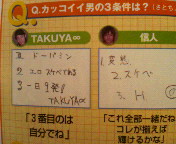 Q.カッコイイ男の3条件は?(さとも
TAKUYA∞
1. ドーパミン
2. エロスケベである
3 一日9発!
TAKUYA∞
「3番目のは
自分でね」
信人
2.スケベ
3. H
「これ全部一緒だね
コレが揃えば
輝けるかな」